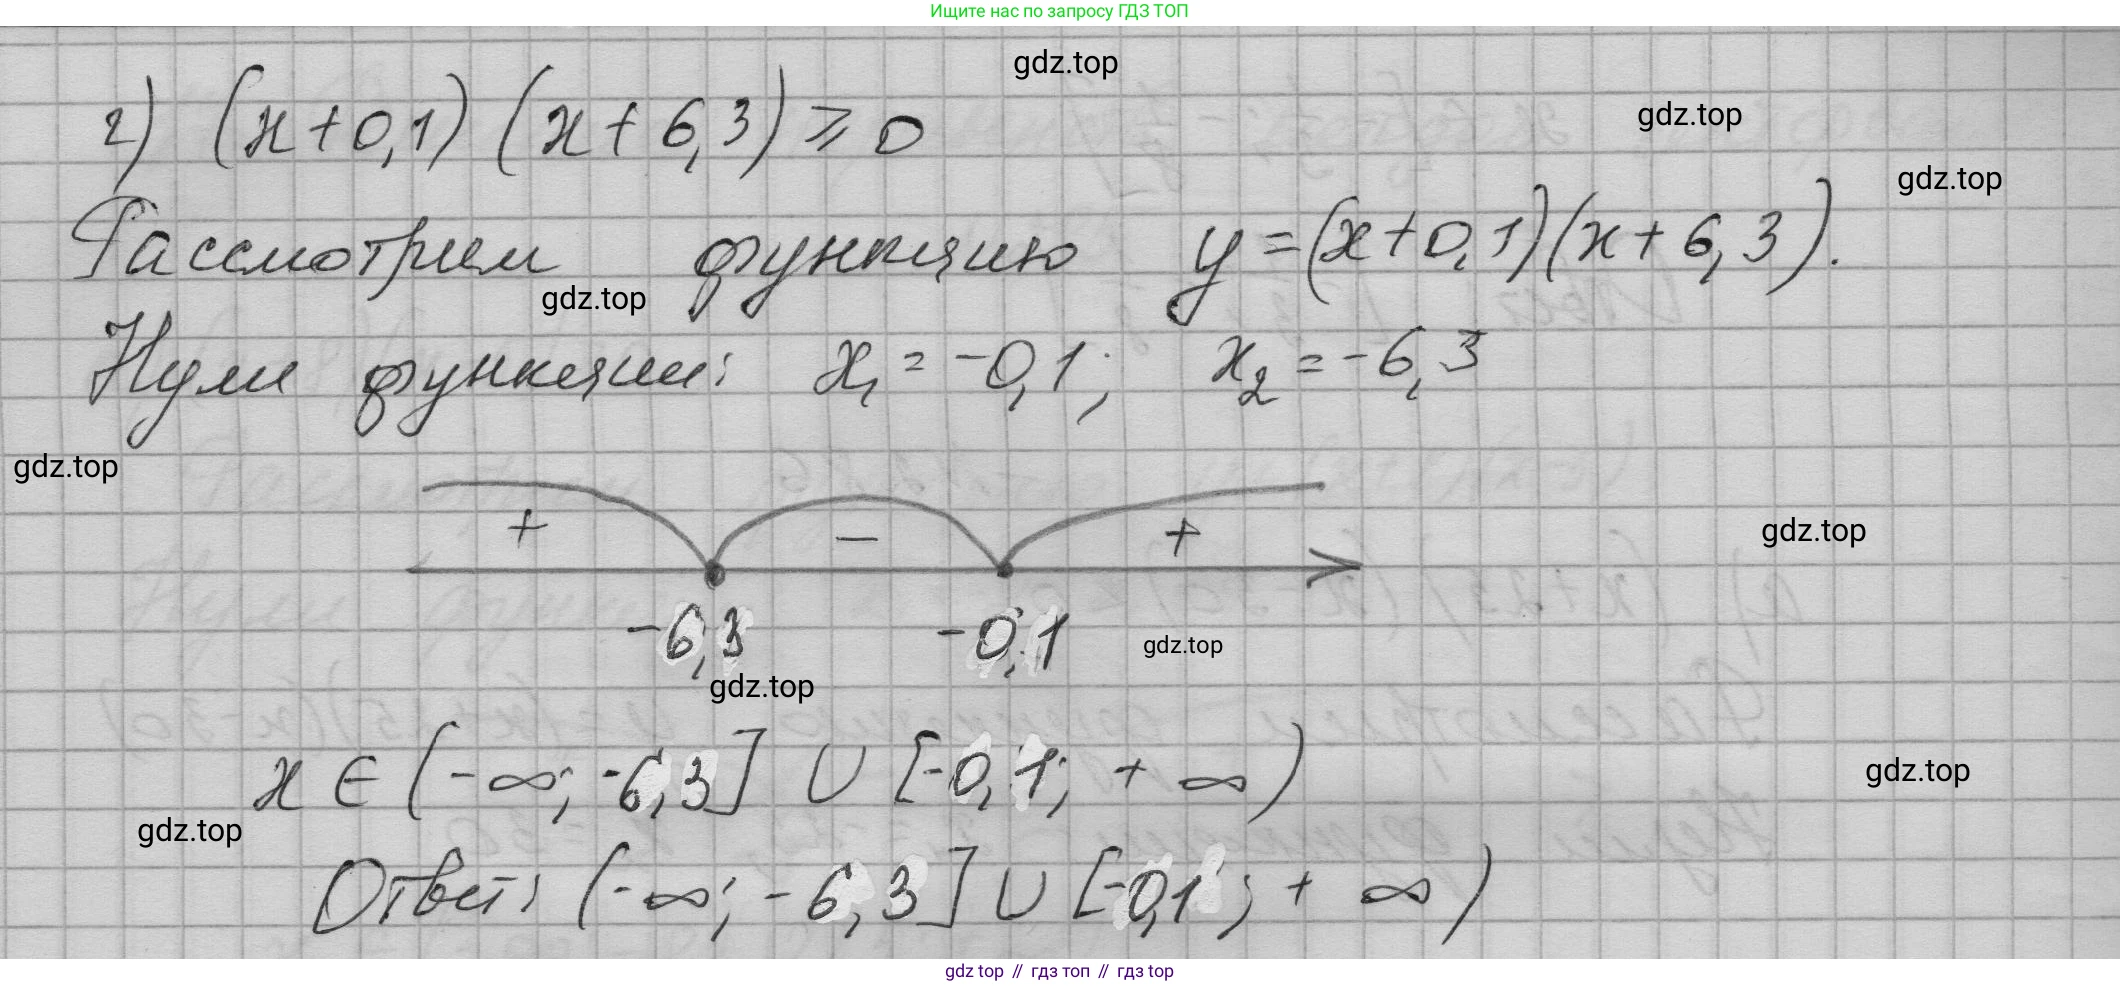 Ищите нас по запросу ГДЗ ТОП
gdz.top
г) (x+0,1) (x+6,3) ⩾ 0
gdz.top
gdz.top
Рассмотрим функцию y=(x+0,1)(x+6,3).
gdz.top
Нули функции: x₁ = -0,1; x₂ = -6,3
gdz.top
+ − +
gdz.top
-6,3 -0,1
gdz.top
gdz.top
x ∈ (-∞; -6,3] ∪ [-0,1; +∞)
gdz.top
gdz.top
Ответ: (-∞; -6,3] ∪ [-0,1; +∞)
gdz top // гдз топ // гдз top